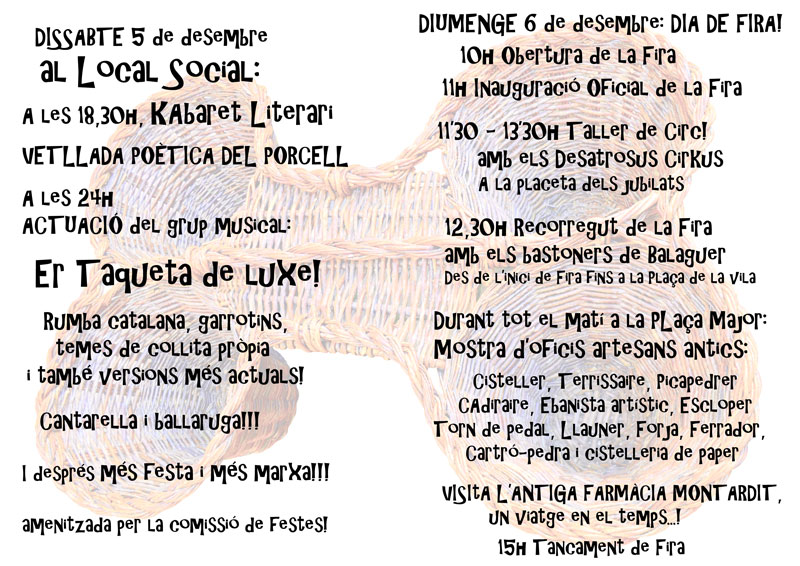 DISSABTE 5 de desembre
al Local Social:
A les 18,30h, Kabaret Literari
VETLLADA POÈTICA DEL PORCELL
A les 24h
ACTUACIÓ del grup musical:
Er Taqueta de luxe!
Rumba catalana, garrotins,
temes de collita pròpia
i també versions més actuals!
Cantarella i ballaruga!!!
I després més festa i més marxa!!!
amenitzada per la comissió de festes!
DIUMENGE 6 de desembre: DIA DE FIRA!
10h Obertura de la Fira
11h Inauguració Oficial de la Fira
11'30 - 13'30h Taller de Circ!
amb els Desatrosus Cirkus
A la placeta dels jubilats
12,30h Recorregut de la Fira
amb els bastoners de Balaguer
Des de l'inici de Fira fins a la Plaça de la Vila
Durant tot el matí a la Plaça Major:
Mostra d'oficis artesans antics:
Cisteller, Terrissaire, Picapedrer
Cadiraire, Ebanista artístic, Escloper
Torn de pedal, Llauner, Forja, Ferrador,
Cartró-pedra i cistelleria de paper
VISITA L'ANTIGA FARMÀCIA MONTARDIT,
un viatge en el temps...!
15h Tancament de Fira